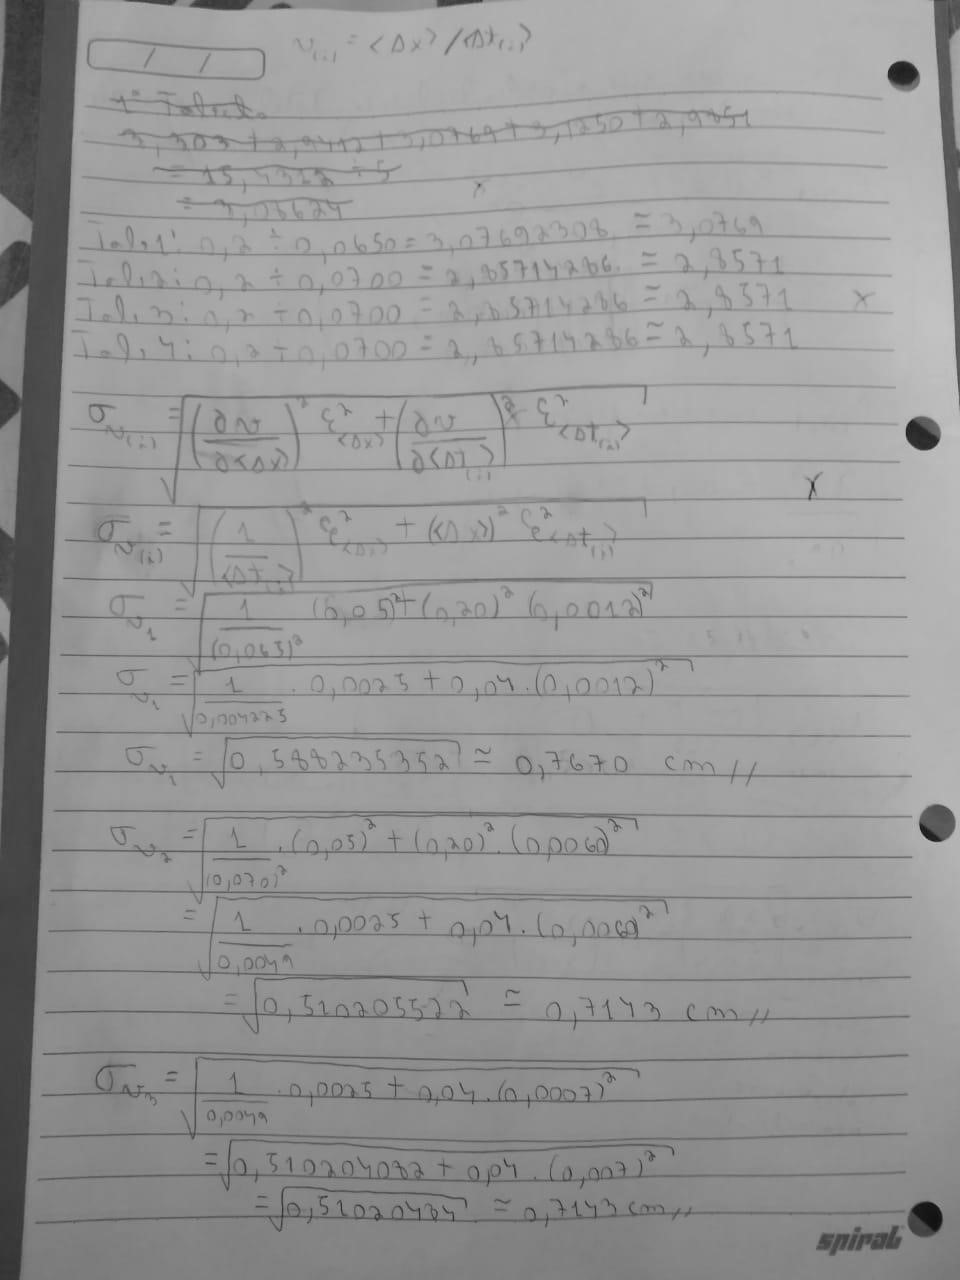 v(i) = <Δx> / <Δt(i)>
/ /
1ª Tabela
3,303 + 2,9412 + 3,0769 + 3,1250 + 2,9851
= 15,4312 ÷ 5
= 3,08624
Tab. 1: 0,2 ÷ 0,0650 = 3,07692308 ≅ 3,0769
Tab. 2: 0,2 ÷ 0,0700 = 2,85714286 ≅ 2,8571
Tab. 3: 0,2 ÷ 0,0700 = 2,85714286 ≅ 2,8571 x
Tab. 4: 0,2 ÷ 0,0700 = 2,85714286 ≅ 2,8571
σv(i) = √((∂v/∂<Δx>)² ε²<Δx> + (∂v/∂<Δt(i)>)² ε²<Δt(i)>)
x
σv(i) = √((1/<Δt(i)>)² ε²<Δx> + (<Δx>)² ε²<Δt(i)>)
σv1 = √(1/(0,065)² (0,05)² + (0,20)² (0,0012)²)
σv1 = √(1/0,004225 . 0,0025 + 0,04 . (0,0012)²)
σv1 = √0,588235352 ≅ 0,7670 cm //
σv2 = √(1/(0,070)² . (0,05)² + (0,20)² . (0,0060)²)
= √(1/0,0049 . 0,0025 + 0,04 . (0,0060)²)
= √0,510205522 ≅ 0,7143 cm //
σv3 = √(1/0,0049 . 0,0025 + 0,04 . (0,0007)²)
= √(0,510204082 + 0,04 . (0,007)²)
= √0,51020434 ≅ 0,7143 cm //
spiral